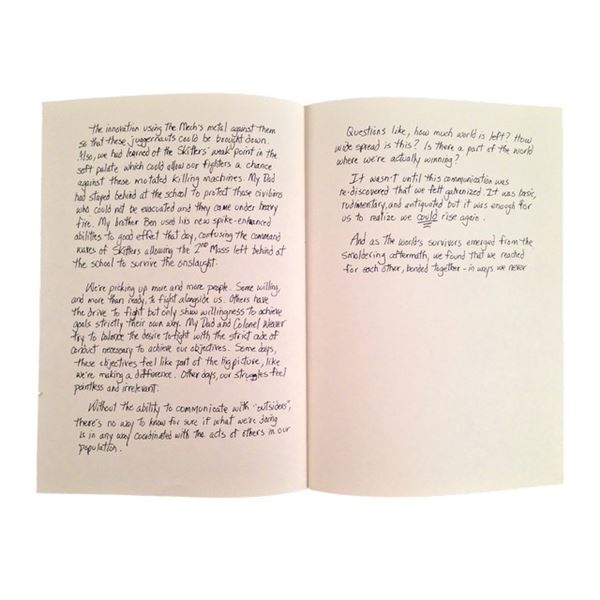 the innovation using the Mech's metal against them
so that these juggernauts could be brought down.
Also, we had learned of the Skitters' weak point in the
soft palate which could allow our fighters a chance
against these mutated killing machines. My Dad
had stayed behind at the school to protect those civilians
who could not be evacuated and they came under heavy
fire. My brother Ben used his new spike-enhanced
abilities to good effect that day, confusing the command
waves of Skitters allowing the 2ND Mass left behind at
the school to survive the onslaught.
We're picking up more and more people. Some willing,
and more than ready, to fight alongside us. Others have
the drive to fight but only show willingness to achieve
goals strictly their own way. My Dad and Colonel Weaver
try to balance the desire to fight with the strict code of
conduct necessary to achieve our objectives. Some days,
these objectives feel like part of the big picture, like
we're making a difference. Other days, our struggles feel
pointless and irrelevant.
Without the ability to communicate with "outsiders",
there's no way to know for sure if what we're doing
is in any way coordinated with the acts of others in our
population.
Questions like, how much world is left? How
wide spread is this? Is there a part of the world
where we're actually winning?
It wasn't until this communication was
re-discovered that we felt galvanized. It was basic,
rudimentary, and antiquated but it was enough for
us to realize we could rise again.
And as the world's survivors emerged from the
smoldering aftermath, we found that we reached
for each other, bonded together - in ways we never